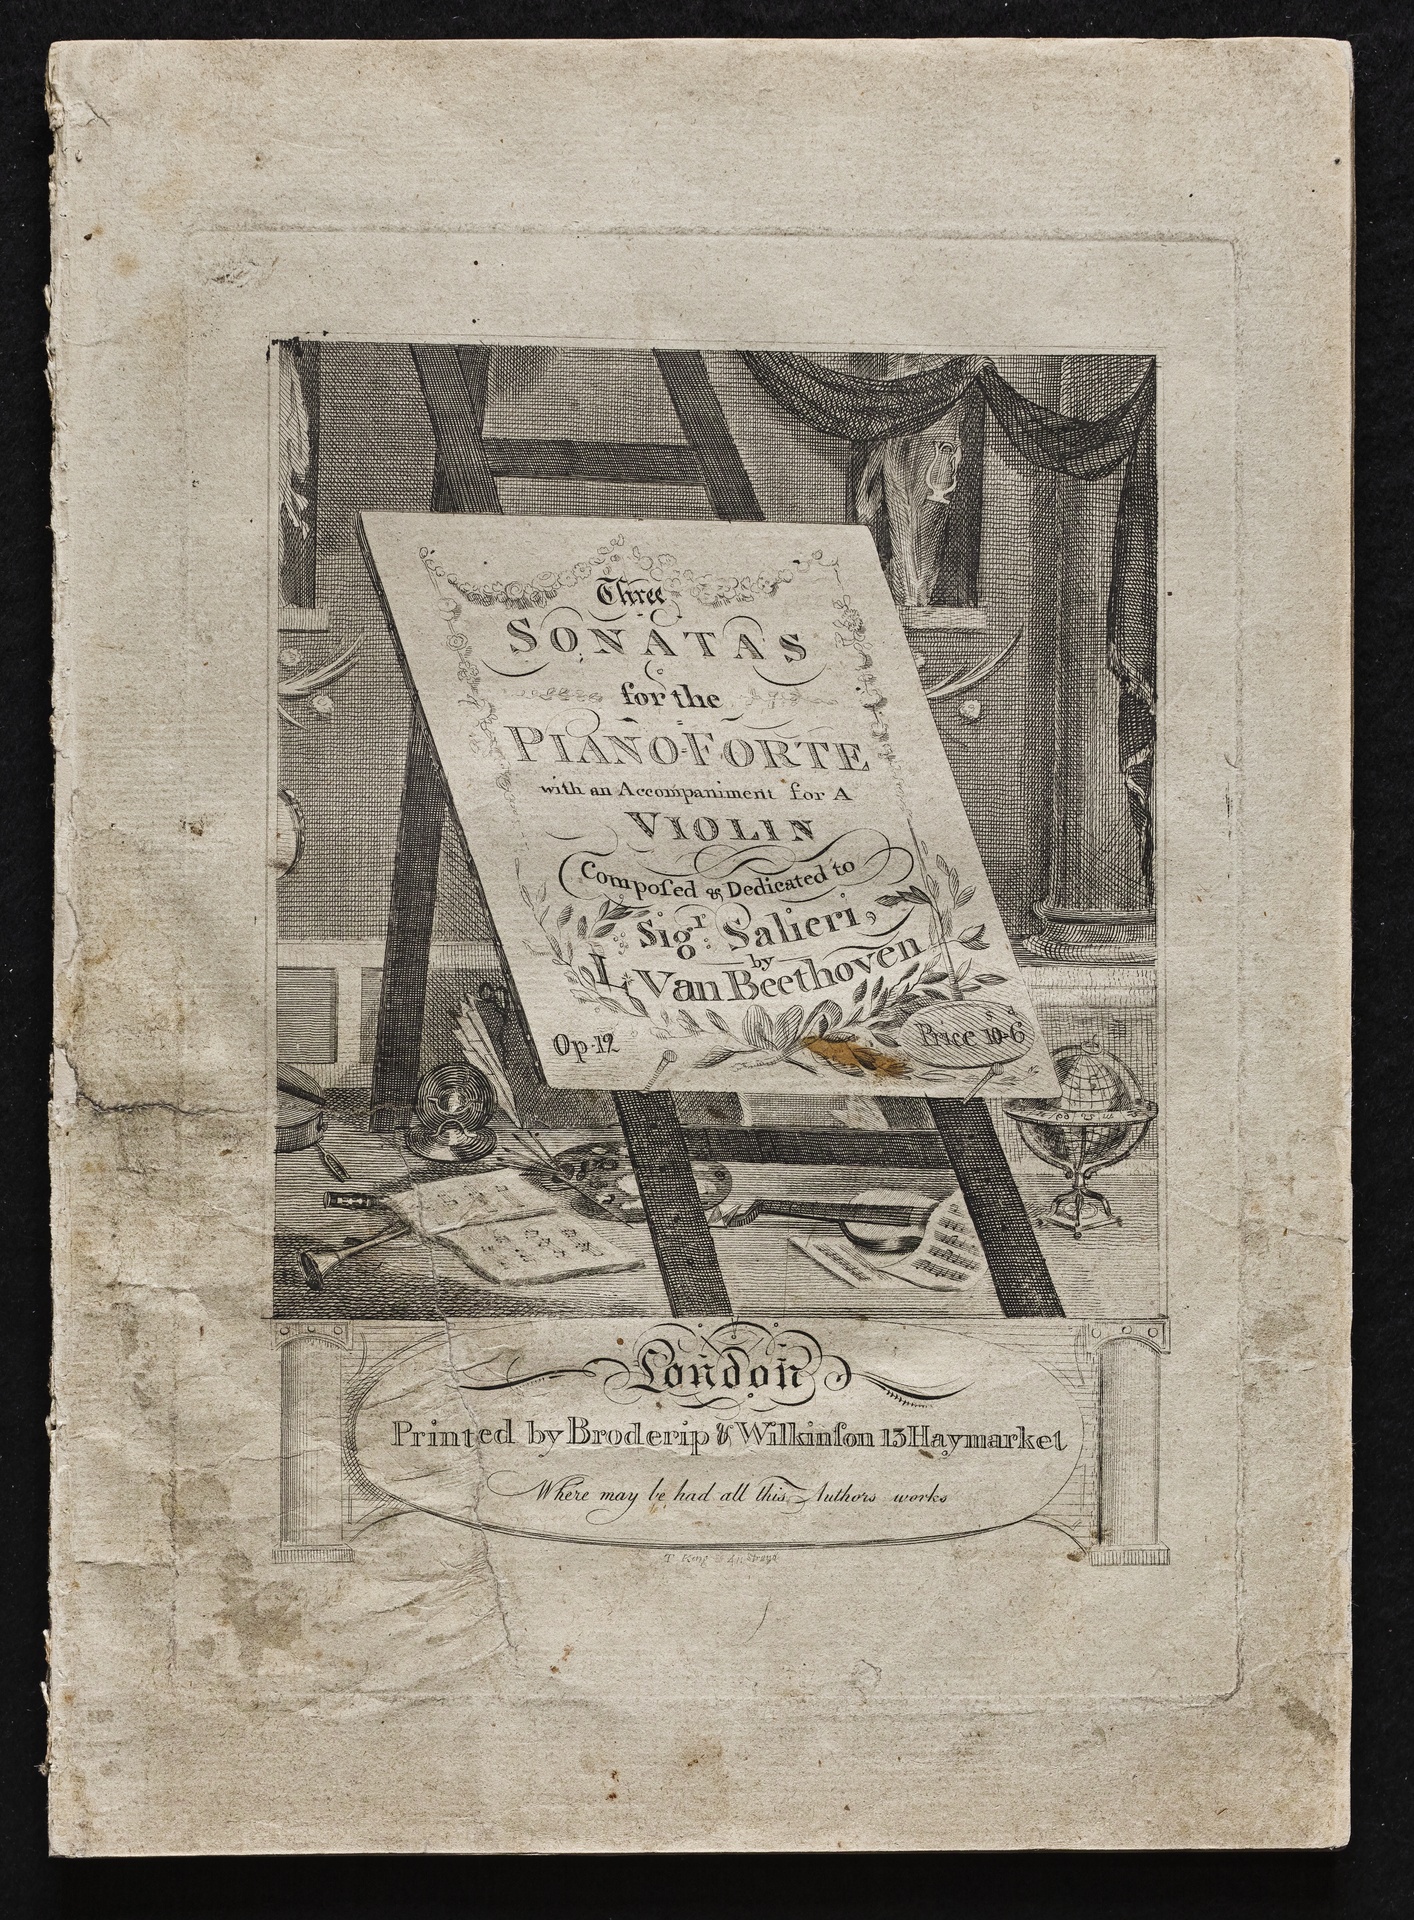 Three
SONATAS
for the
PIANO-FORTE
with an Accompaniment for A
VIOLIN
Compoſed & Dedicated to
Sigr. Salieri,
by
L. Van Beethoven
Op. 12
Price 10s-6d
London
Printed by Broderip & Wilkinſon 13 Haymarket
Where may be had all this Authors works